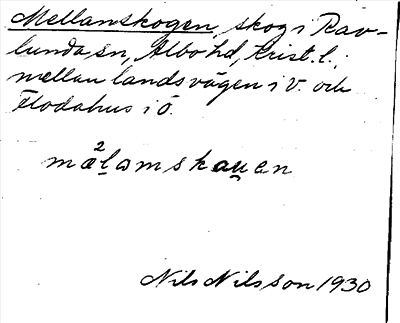 Mellanskogen, skog i Rav-
lunda sn, Albo hd, Krist. l.,
mellan landsvägen i V. och
Flodahus i Ö.
mǽl̲amskau̲en
Nils Nilsson 1930